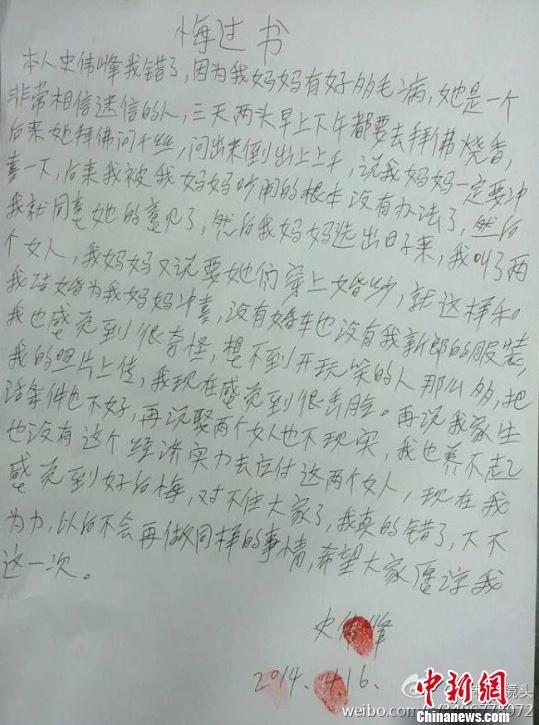 悔过书
本人史伟峰我错了，因为我妈妈有好多毛病，她是一个
非常相信迷信的人，三天两头早上下午都要去拜佛烧香，
后来她拜佛问千丝，问出来倒出上上千，说我妈妈一定要冲
喜一下，后来我被我妈妈吵闹的根本没有办法了，然后
我就同意她的意见了，然后我妈妈选出日子来，我叫了两
个女人，我妈妈又说要她们穿上婚纱，就这样和
我结婚为我妈妈冲喜，没有婚车也没有我新郎的服装，
我也感觉到很奇怪，想不到开玩笑的人那么多，把
我的照片上传，我现在感觉到很丢脸。再说我家生
活条件也不好，再说娶两个女人也不现实，我也养不起
也没有这个经济实力去应付这两个女人，现在我
感觉到好后悔，对不住大家了，我真的错了，不不
为力，以后不会再做同样的事情，希望大家原谅我
这一次。
史伟峰
2014.4.16.
镜头
weibo.com/
中新网
www.chinanews.com